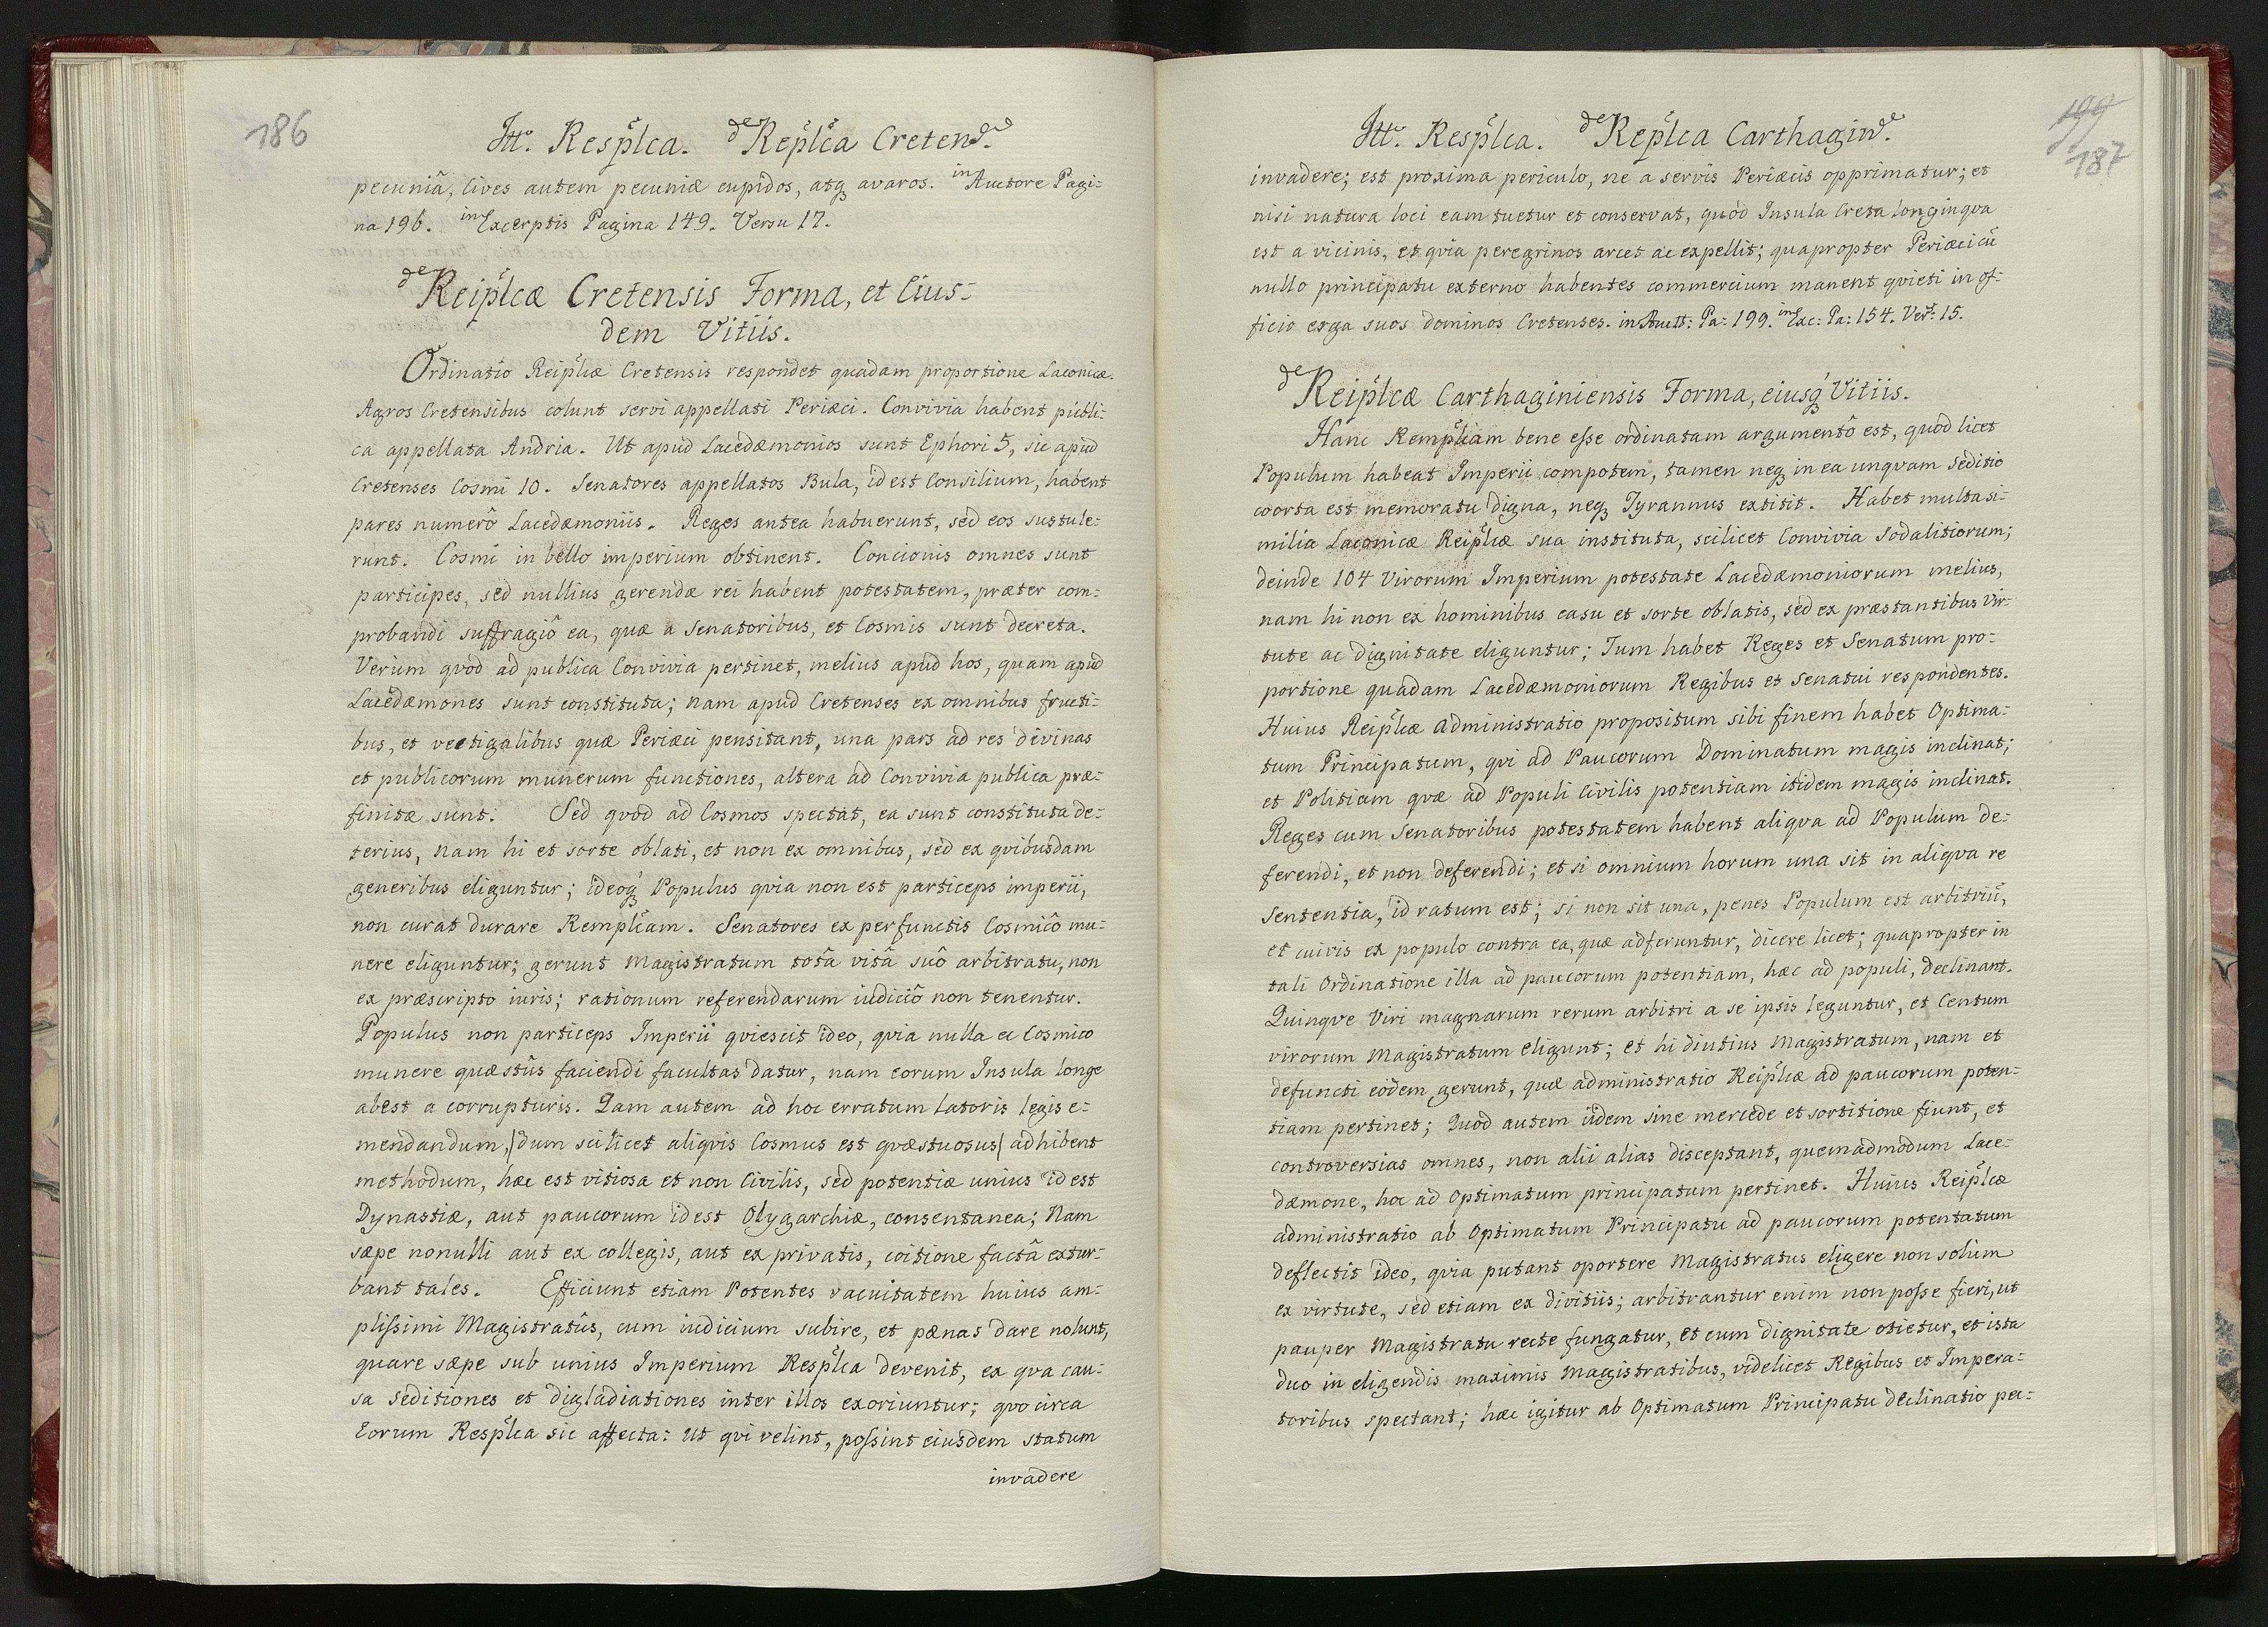 186
Itt. Resplca. de Replca Cretend.
pecuniâ, Cives autem pecuniæ cupidos, atq3 avaros. in Auctore Pagi:
na 196. in Excerptis Pagina 149. Versu 17.
de Reiplcæ Cretensis Forma, et Eius=
dem Vitiis.
Ordinatio Reiplcæ Cretensis respondet quadam proportione Laconicæ.
Agros Cretensibus colunt servi appellati Periæci. Convivia habent publi:
ca appellata Andria. Ut apud Lacedæmonios sunt Ephori 5, sic apud
Cretenses Cosmi 10. Senatores appellatos Bula, id est Consilium, habent
pares numerô Lacedæmoniis. Reges antea habuerunt, sed eos sustule:
runt. Cosmi in bello imperium obtinent. Concionis omnes sunt
participes, sed nullius gerendæ rei habent potestatem, præter com:
probandi suffragiô ea, quæ a Senatoribus, et Cosmis sunt decreta.
Verum quod ad publica Convivia pertinet, melius apud hos, quam apud
Lacedæmones sunt constituta; nam apud Cretenses ex omnibus fructi:
bus, et vectigalibus quæ Periæci pensitant, una pars ad res divinas
et publicorum munerum functiones, altera ad Convivia publica præ:
finitæ sunt. Sed quod ad Cosmos spectat, ea sunt constituta de:
terius, nam hi et sorte oblati, et non ex omnibus, sed ex quibusdam
generibus eliguntur; ideoq3 Populus qvia non est particeps imperii,
non curat durare Remplcam. Senatores ex perfunctis Cosmicô mu:
nere eliguntur; gerunt Magistratum totâ vitâ suô arbitratu, non
ex præscripto iuris; rationum referendarum iudiciô non tenentur.
Populus non particeps Imperii qviescit ideo, qvia nulla ex Cosmico
munere quæstûs faciendi facultas datur, nam eorum Insula longe
abest a corrupturis. Qam autem ad hoc erratum latoris legis e:
mendandum, /dum scilicet aliqvis Cosmus est qvæstuosus/ adhibent
methodum, hæc est vitiosa et non Civilis, sed potentiæ unius id est
Dynastiæ, aut paucorum id est Olygarchiæ, consentanea; Nam
sæpe nonulli aut ex collegis, aut ex privatis, coitione factâ extur:
bant tales. Efficiunt etiam Potentes vacuitatem huius am:
plissimi Magistratûs, cum iudicium subire, et pænas dare nolunt,
quare sæpe sub unius Imperium Resplca devenit, ex qva cau:
sa seditiones et digladiationes inter illos exoriuntur; qvo circa
Eorum Resplca sic affecta: ut qvi velint, possint eiusdem statum
invadere
199
187
Itt. Resplca. de Replca Carthagind.
invadere; est proxima periculo, ne a servis Periæcis opprimatur; et
nisi natura loci eam tuetur et conservat, quòd Insula Creta longinqva
est a vicinis, et qvia peregrinos arcet ac expellit; quapropter Periæci cũ
nullo principatu externo habentes commercium manent qvieti in of:
ficio erga suos dominos Cretenses. in Auctt: Pa: 199. in Exc: Pa: 154. Ver: 15.
de Reiplcæ Carthaginiensis Forma, eiusq3 Vitiis.
Hanc Remplcam bene esse ordinatam argumentô est, quòd licet
Populum habeat Imperii compotem, tamen neq3 in ea unqvam Seditio
coorta est memoratu digna, neq3 Tyrannus extitit. Habet multa si:
milia Laconicæ Reiplcæ sua instituta, scilicet Convivia Sodalitiorum;
deinde 104 Virorum Imperium potestate Lacedæmoniorum melius,
nam hi non ex hominibus casu et sorte oblatis, sed ex præstantibus Vir:
tute ac dignitate eliguntur; Tum habet Reges et Senatum pro:
portione quadam Lacedæmoniorum Regibus et Senatui respondentes.
Huius Reiplcæ administratio propositum sibi finem habet Optima:
tum Principatum, qvi ad Paucorum Dominatum magis inclinat;
et Politiam qvæ ad Populi Civilis potentiam itidem magis inclinat.
Reges cum Senatoribus potestatem habent aliqva ad Populum de:
ferendi, et non deferendi; et si omnium horum una sit in aliqva re
Sententia, id ratum est; si non sit una, penes Populum est arbitriũ,
et cuivis ex populo contra ea, quæ adferuntur, dicere licet; quapropter in
tali Ordinatione illa ad paucorum potentiam, hæc ad populi, declinant.
Quinqve Viri magnarum rerum arbitri a se ipsis leguntur, et Centum
virorum Magistratum eligunt; et hi diutius Magistratum, nam et
defuncti eôdem gerunt, quæ administratio Reiplcæ ad paucorum poten:
tiam pertinet; Quod autem iidem sine mercede et sortitione fiunt, et
controversias omnes, non alii alias disceptant, quemadmodum Lace:
dæmone, hoc ad Optimatum principatum pertinet. Huius Reiplcæ
administratio ab Optimatum Principatu ad paucorum potentatum
deflectit ideo, qvia putant oportere Magistratus eligere non solum
ex virtute, sed etiam ex divitiis; arbitrantur enim non posse fieri, ut
pauper Magistratu recte fungatur, et cum dignitate otietur, et ista
duo in eligendis maximis Magistratibus, videlicet Regibus et Impera:
toribus spectant; hæc igitur ab Optimatum Principatu declinatio pec: